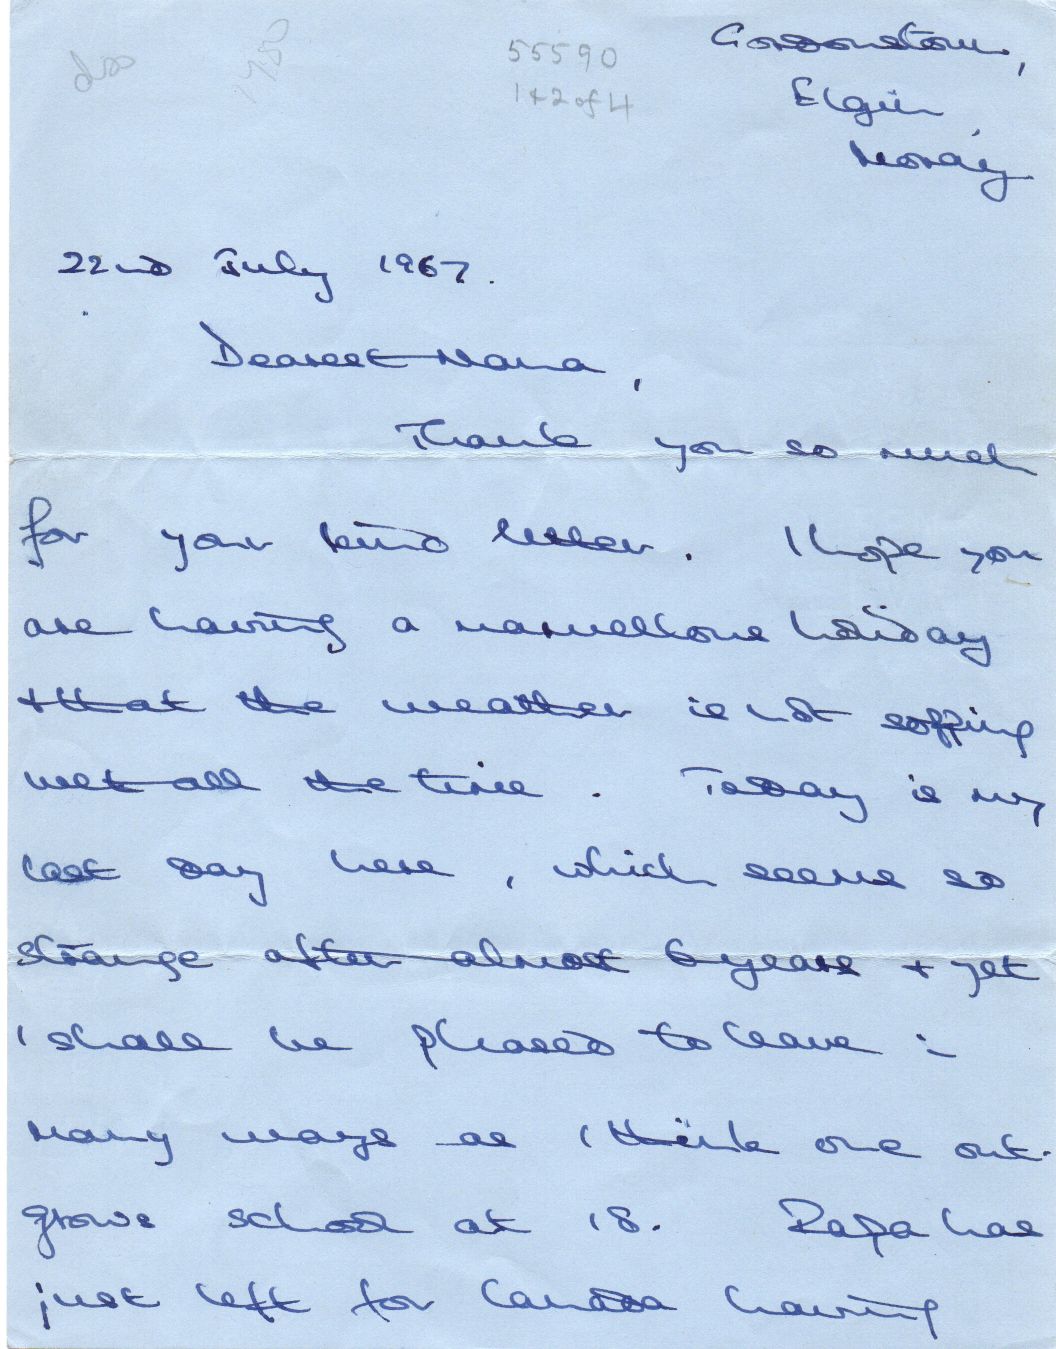 55590
1+2 of 4
Gordonstoun,
Elgin,
Moray.
22nd July 1967.
Dearest Nana,
Thank you so much
for your kind letter. I hope you
are having a marvellous holiday
+ that the weather is not sopping
wet all the time. Today is my
last day here, which seems so
strange after almost 6 years + yet
I shall be pleased to leave in
many ways as I think one out-
grows school at 18. Papa has
just left for Canada having